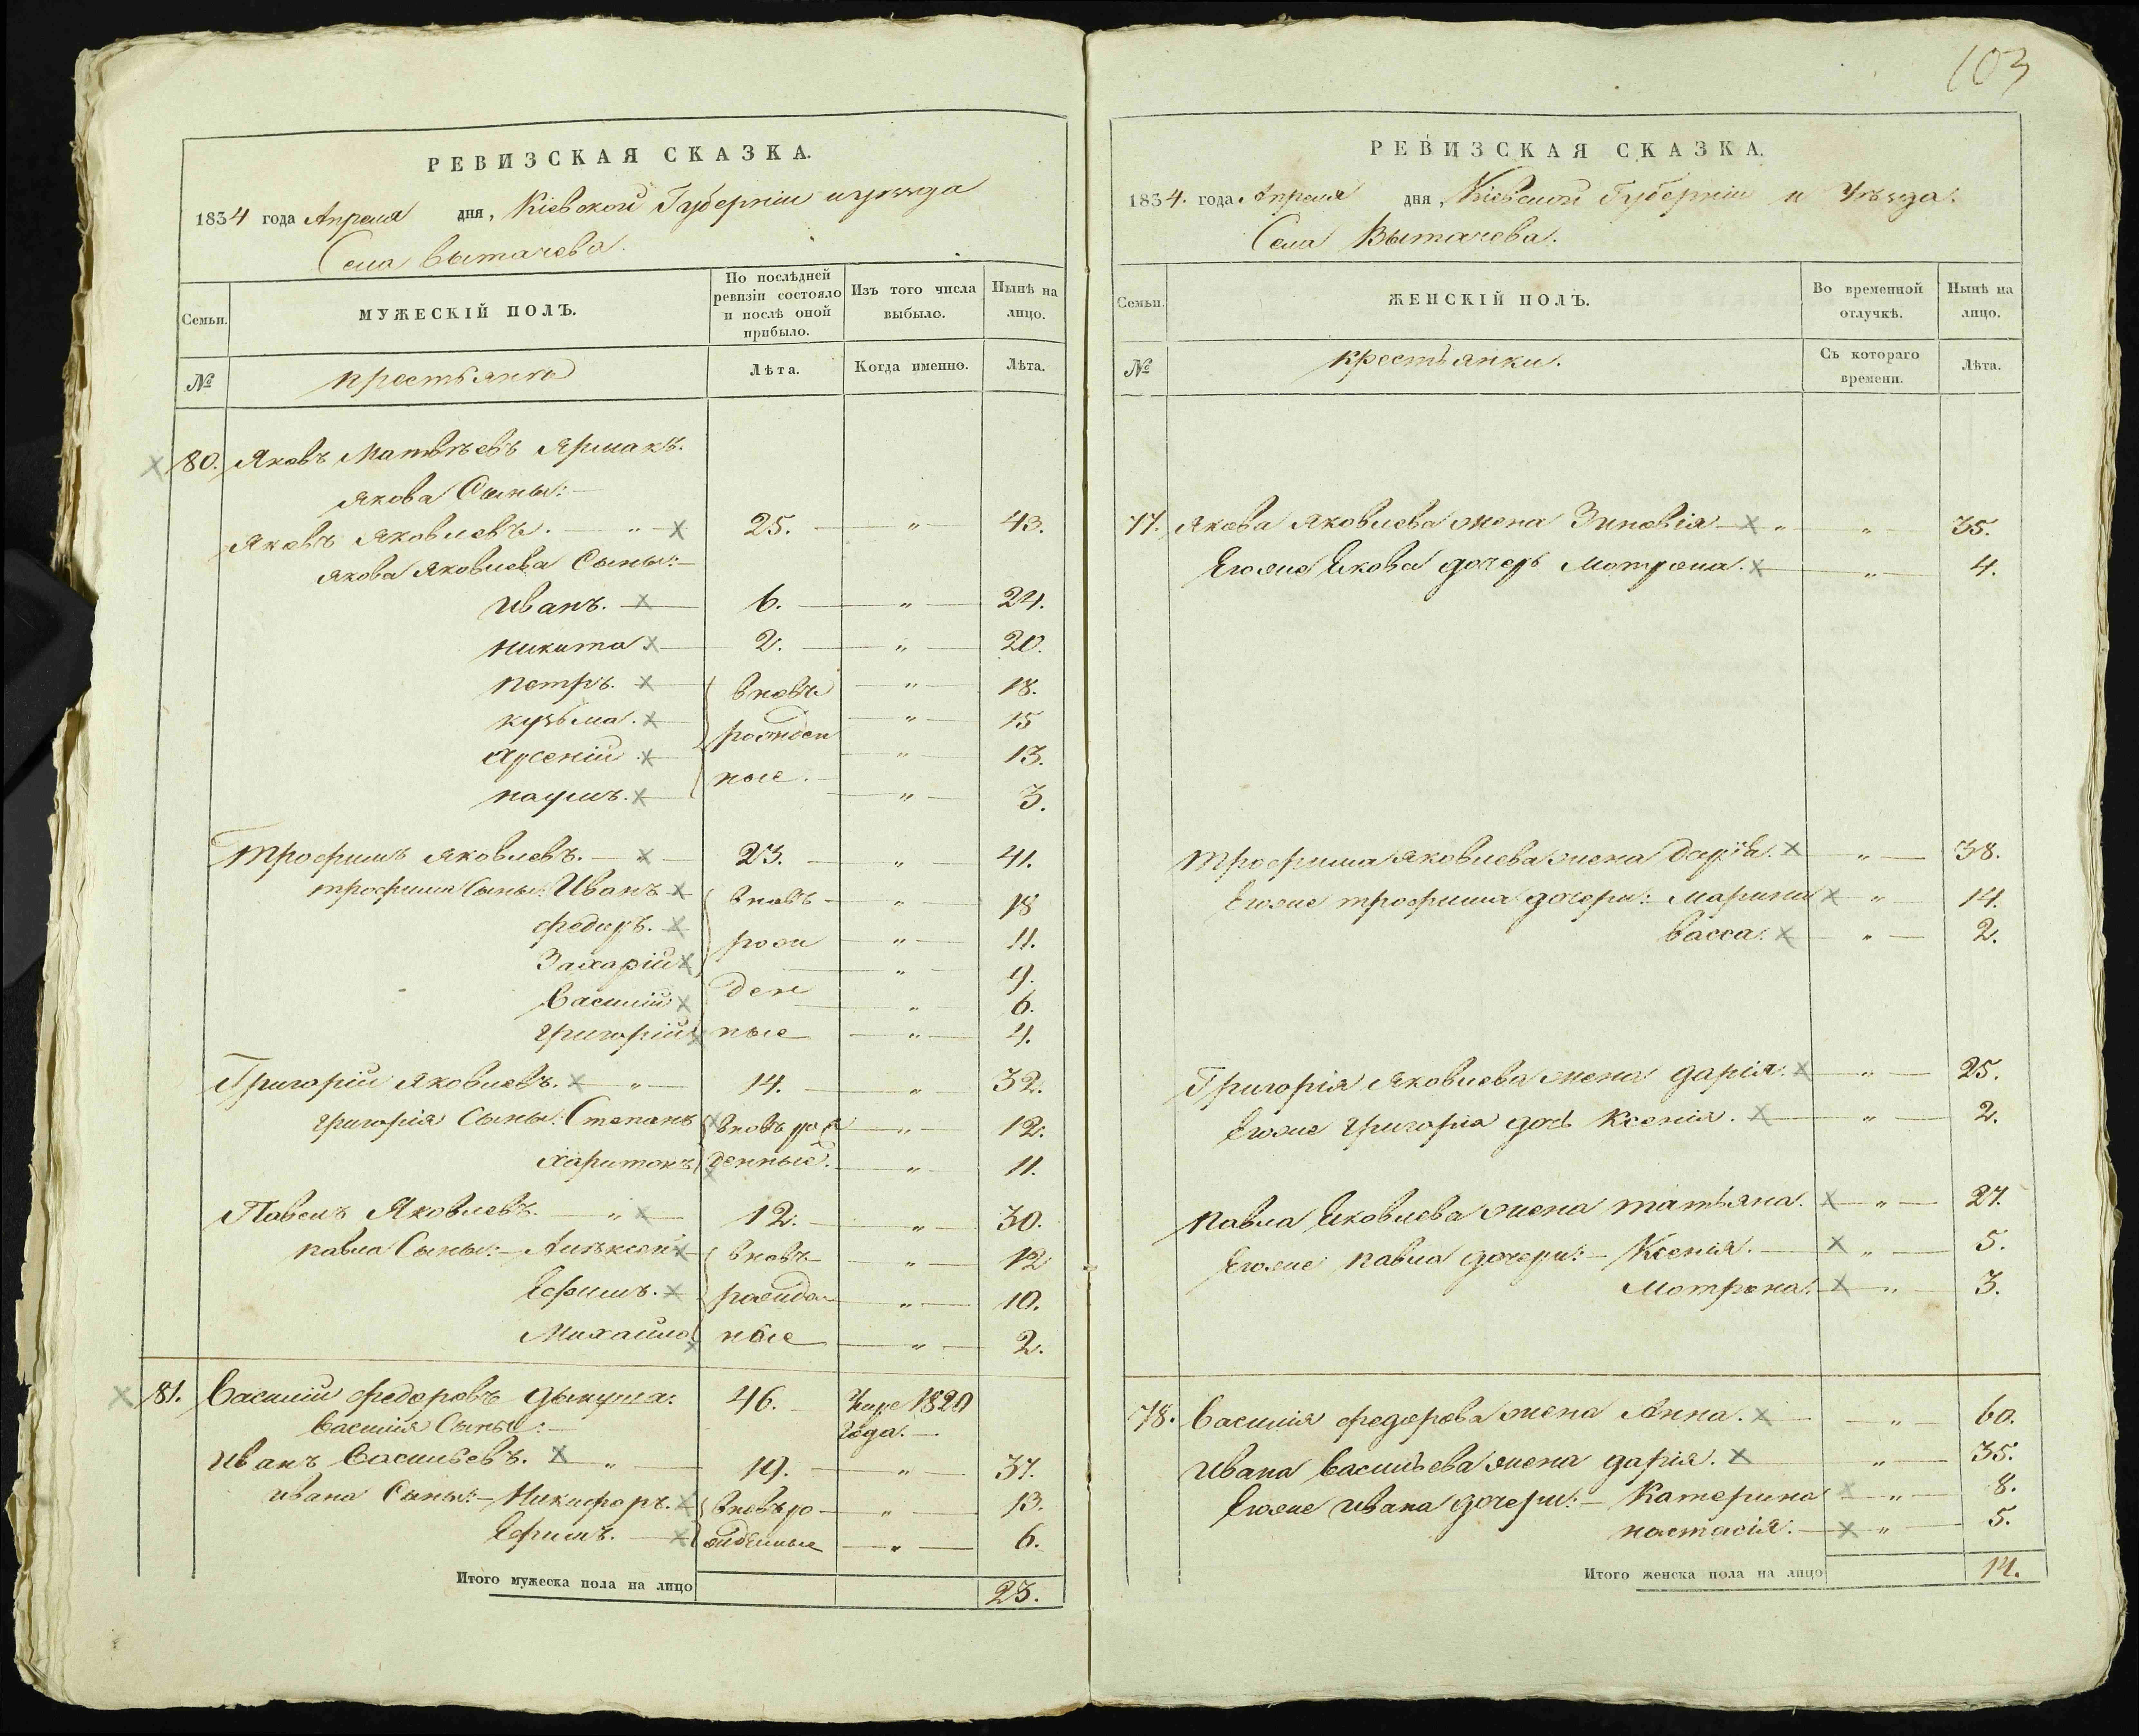 103
РЕВИЗСКАЯ СКАЗКА.
1834 года Апреля дня, Кіевской Губерніи и уѣзда
Села Вытачева.
Семьи. МУЖЕСКІЙ ПОЛЪ. По послѣдней ревизіи состояло и послѣ оной прибыло. Изъ того числа выбыло. Нынѣ на лицо.
№ крестьяне Лѣта. Когда именно. Лѣта.
80. Яковъ Матвѣевъ Ярмакъ.
Якова Сыны:
Яковъ Яковлевъ. " 25. " 43.
Якова Яковлева Сыны:
Иванъ. 6. " 24.
Никита 2. " 20.
Петръ. вновь " 18.
кузьма. рожден " 15
Арсеній " 13.
ные.
наумъ. " 3.
Трофимъ Яковлевъ. 23. " 41.
трофима Сыны: Иванъ вновь " 18
федоръ. рож " 11.
Захарій " 9.
ден
Василій " 6.
григорій ные " 4.
Григорій Яковлевъ. " 14. " 32.
григорія Сыны: Степанъ вновь рож " 12.
харитонъ денные. " 11.
Павелъ Яковлевъ. " 12. " 30.
павла Сыны: Алѣксей вновь " 12
Ефимъ. рожден " 10.
Михайло ные " 2.
81. Василій федоровъ 46. Умре 1820
Василія Сыны: года.
Иванъ Васильевъ. " 19. " 37.
Ивана Сыны: Никифоръ. вновь ро " 13.
Ефимъ. жденные " 6.
Итого мужеска пола на лицо 23.
РЕВИЗСКАЯ СКАЗКА.
1834. года Апреля дня, Кіевской Губерніи и Уѣзда.
Села Вытачева.
Семьи. ЖЕНСКІЙ ПОЛЪ. Во временной отлучкѣ. Нынѣ на лицо.
№ крестьянки. Съ котораго времени. Лѣта.
77. Якова Яковлева жена Зиновія " " 35.
Егоже Якова дочерь Мотрона. " 4.
Трофима Яковлева жена Дарія. " 38.
Егоже трофима дочери: Марина " 14.
васса. " 2.
Григорія Яковлева жена дарія. " 25.
Егоже григорія дочь Ксенія. " 2.
Павла Яковлева жена татьяна. " 27.
Егоже павла дочери: Ксенія. " 5.
Мотрона. " 3.
78. Василія федорова жена Анна. " 60.
Ивана Васильева жена дарія. " 35.
Егоже ивана дочери: Катерина " 8.
настасія. " 5.
Итого женска пола на лицо 14.